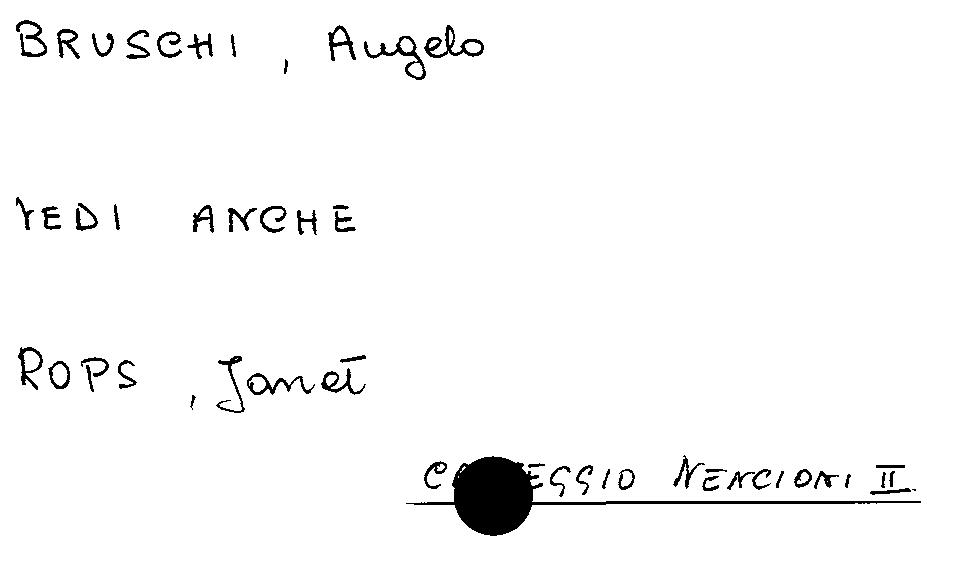 BRUSCHI, Angelo
VEDI ANCHE
ROPS, Janet
NENCIONI II